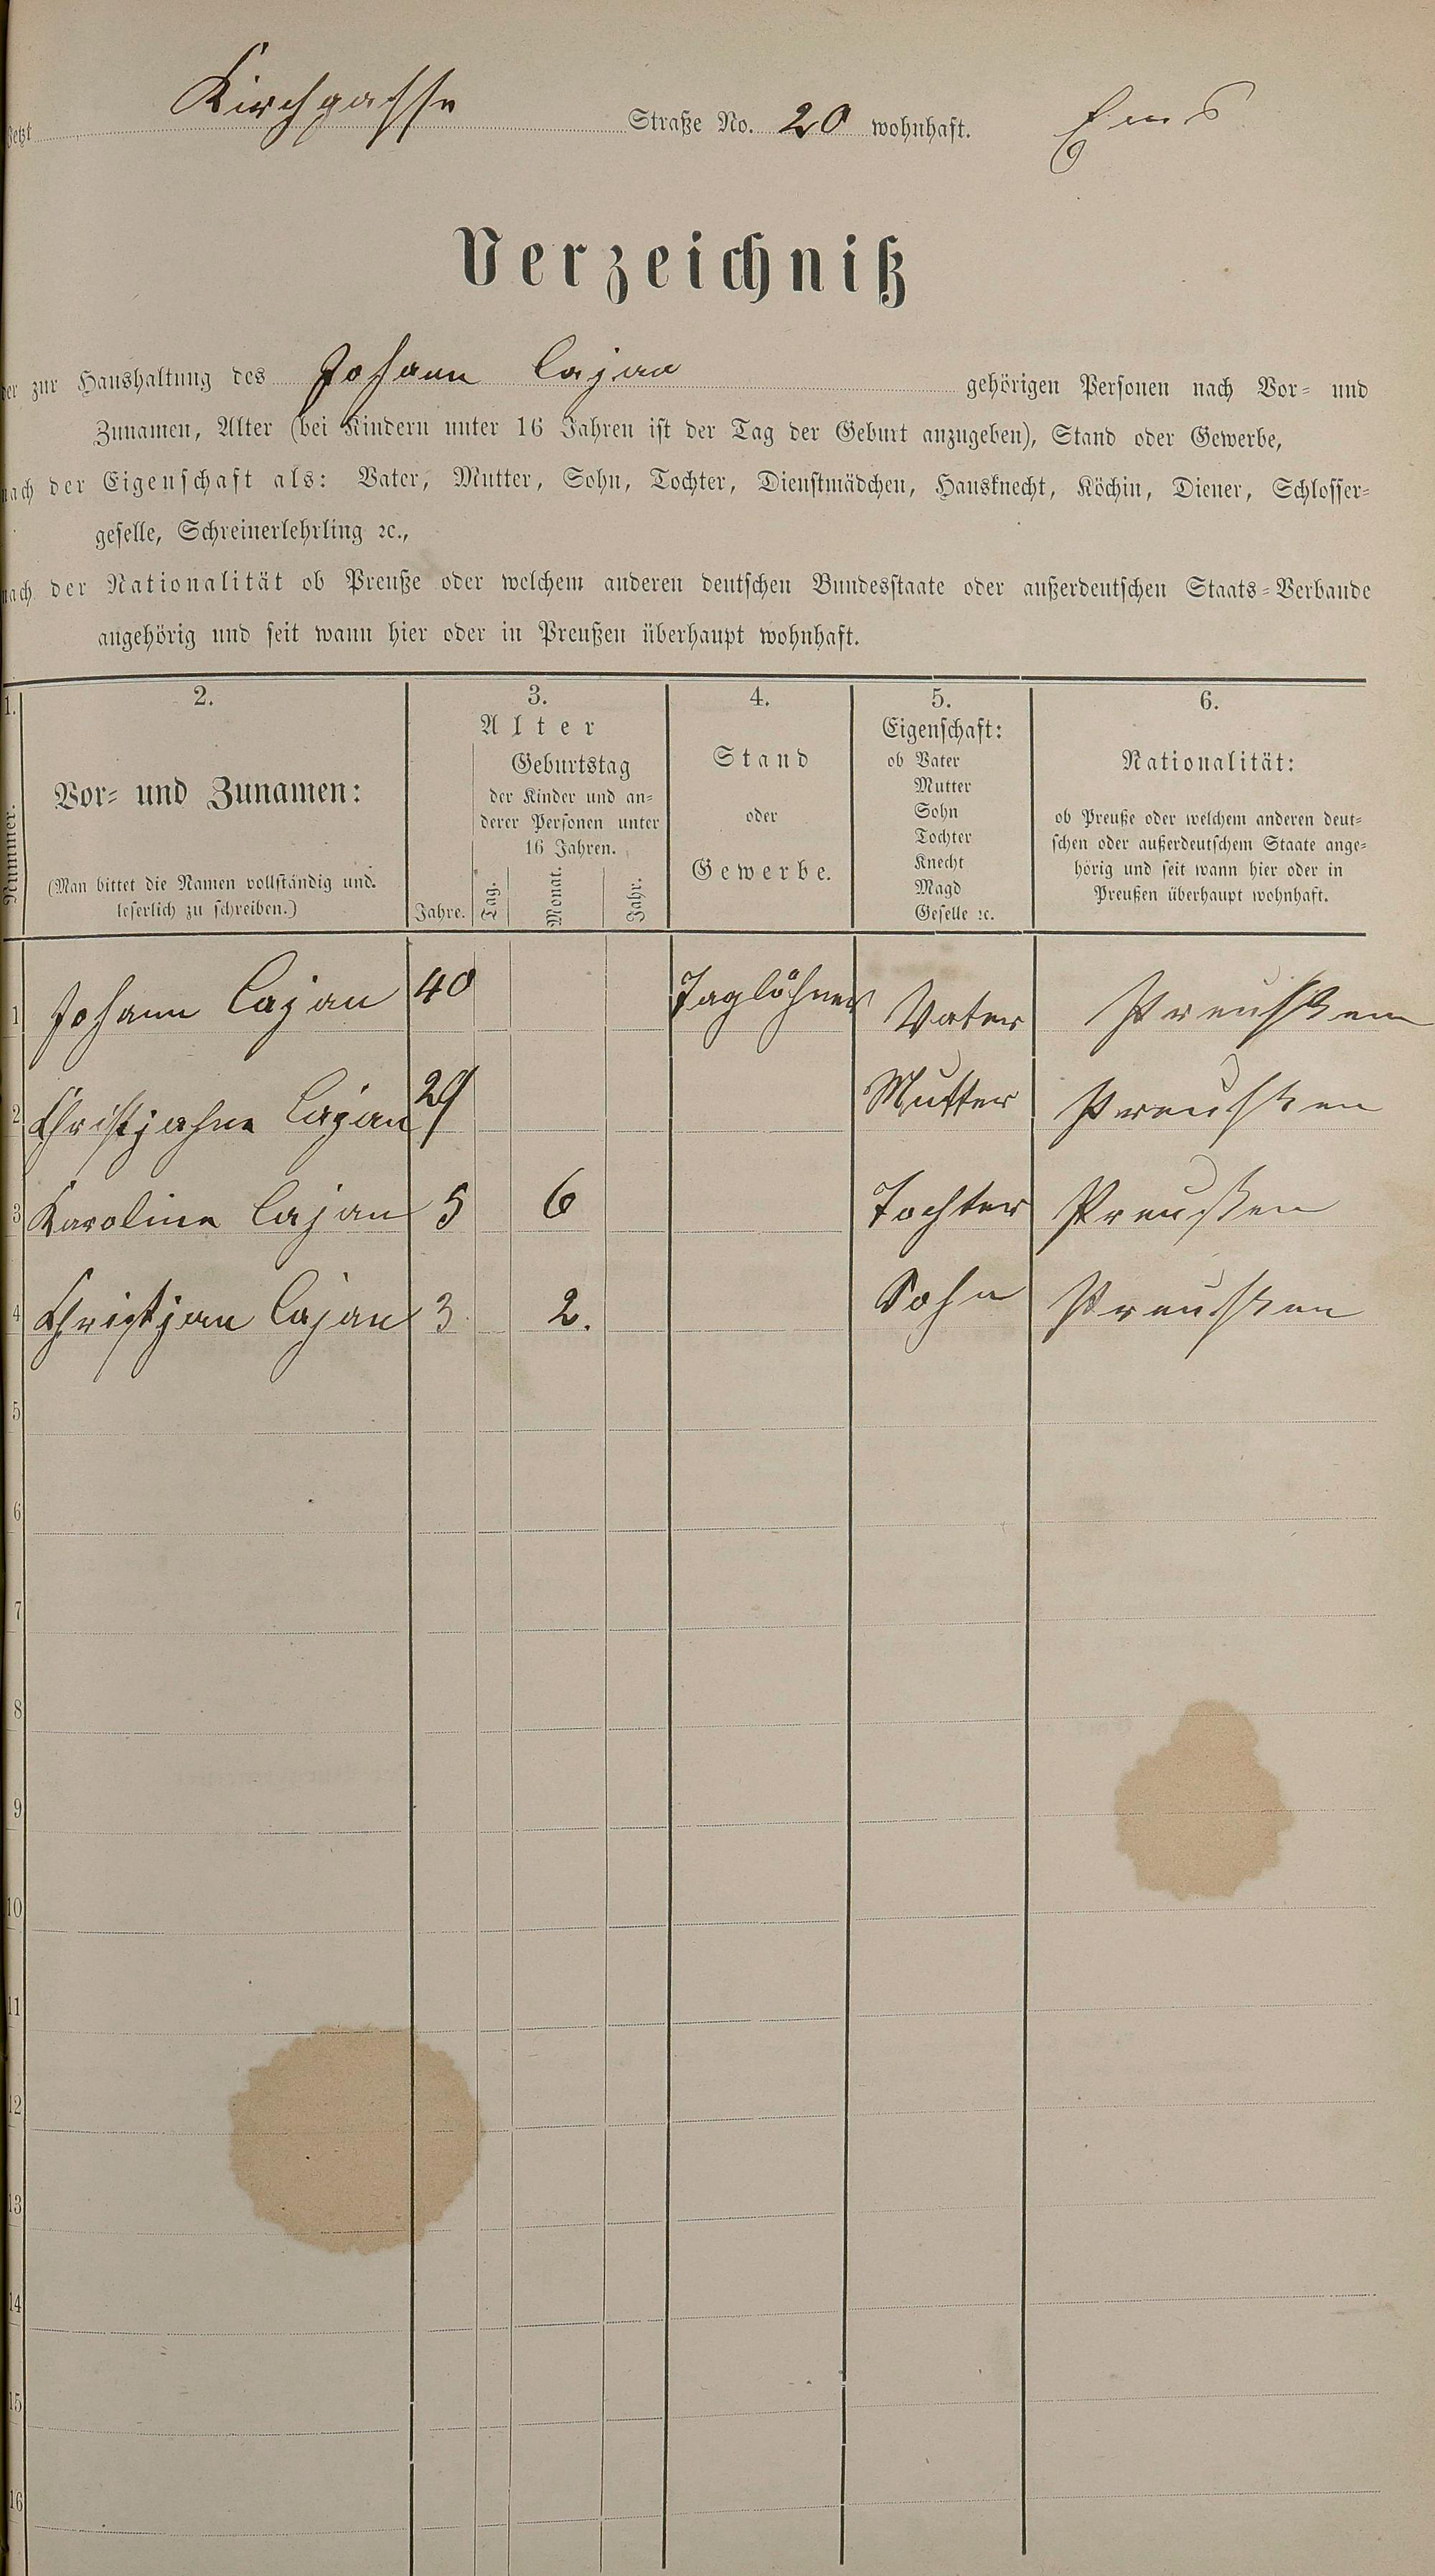 Jetzt Kirchgasse Straße No. 20 wohnhaft. Ems
Verzeichniß
der zur Haushaltung des Johann Cajan gehörigen Personen nach Vor- und
Zunamen, Alter (bei Kindern unter 16 Jahren ist der Tag der Geburt anzugeben), Stand oder Gewerbe,
nach der Eigenschaft als: Vater, Mutter, Sohn, Tochter, Dienstmädchen, Hausknecht, Köchin, Diener, Schlosser-
geselle, Schreinerlehrling ꝛc.,
nach der Nationalität ob Preuße oder welchem anderen deutschen Bundesstaate oder außerdeutschen Staats-Verbande
angehörig und seit wann hier oder in Preußen überhaupt wohnhaft.
1.
Nummer.
2.
Vor- und Zunamen:
(Man bittet die Namen vollständig und
leserlich zu schreiben.)
3.
Alter
Jahre.
Geburtstag
der Kinder und an-
derer Personen unter
16 Jahren.
Tag. Monat. Jahr.
4.
Stand
oder
Gewerbe.
5.
Eigenschaft:
ob Vater
Mutter
Sohn
Tochter
Knecht
Magd
Geselle ꝛc.
6.
Nationalität:
ob Preuße oder welchem anderen deut-
schen oder außerdeutschem Staate ange-
hörig und seit wann hier oder in
Preußen überhaupt wohnhaft.
1 Johann Cajan 40 Taglöhner Vater Preußen
2 Christjahne Cajan 29 Mutter Preußen
3 Karoline Cajan 5 6 Tochter Preußen
4 Christjan Cajan 3 2. Sohn Preußen
5
6
7
8
9
10
11
12
13
14
15
16